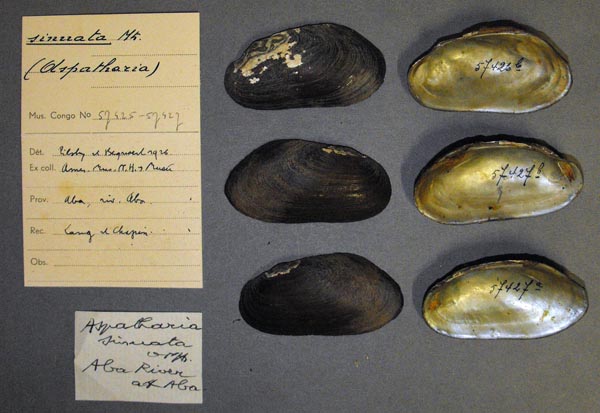 sinuata Mts.
(Aspatharia)
Mus. Congo No 57425-57427
Dét. Pilsby & Bequaert 1926
Ex coll. Amer. Mus. N. H. > Musée
Prov. Aba, riv. Aba.
Rec. Lang & Chapin.
Obs.
Aspatharia
sinuata
Aba River
at Aba.
57426b
57427b
57427a